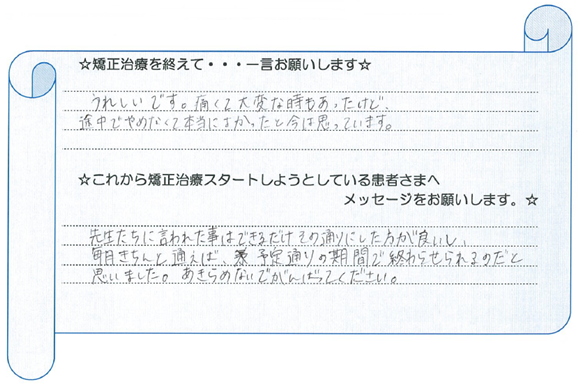 ☆矯正治療を終えて・・・一言お願いします☆
うれしいです。痛くて大変な時もあったけど、
途中でやめなくて本当によかったと今は思っています。
☆これから矯正治療スタートしようとしている患者さまへ
メッセージをお願いします。☆
先生たちに言われた事はできるだけその通りにした方が良いし、
毎月きちんと通えば、予定通りの期間で終わらせられるのだと
思いました。あきらめないでがんばってください。